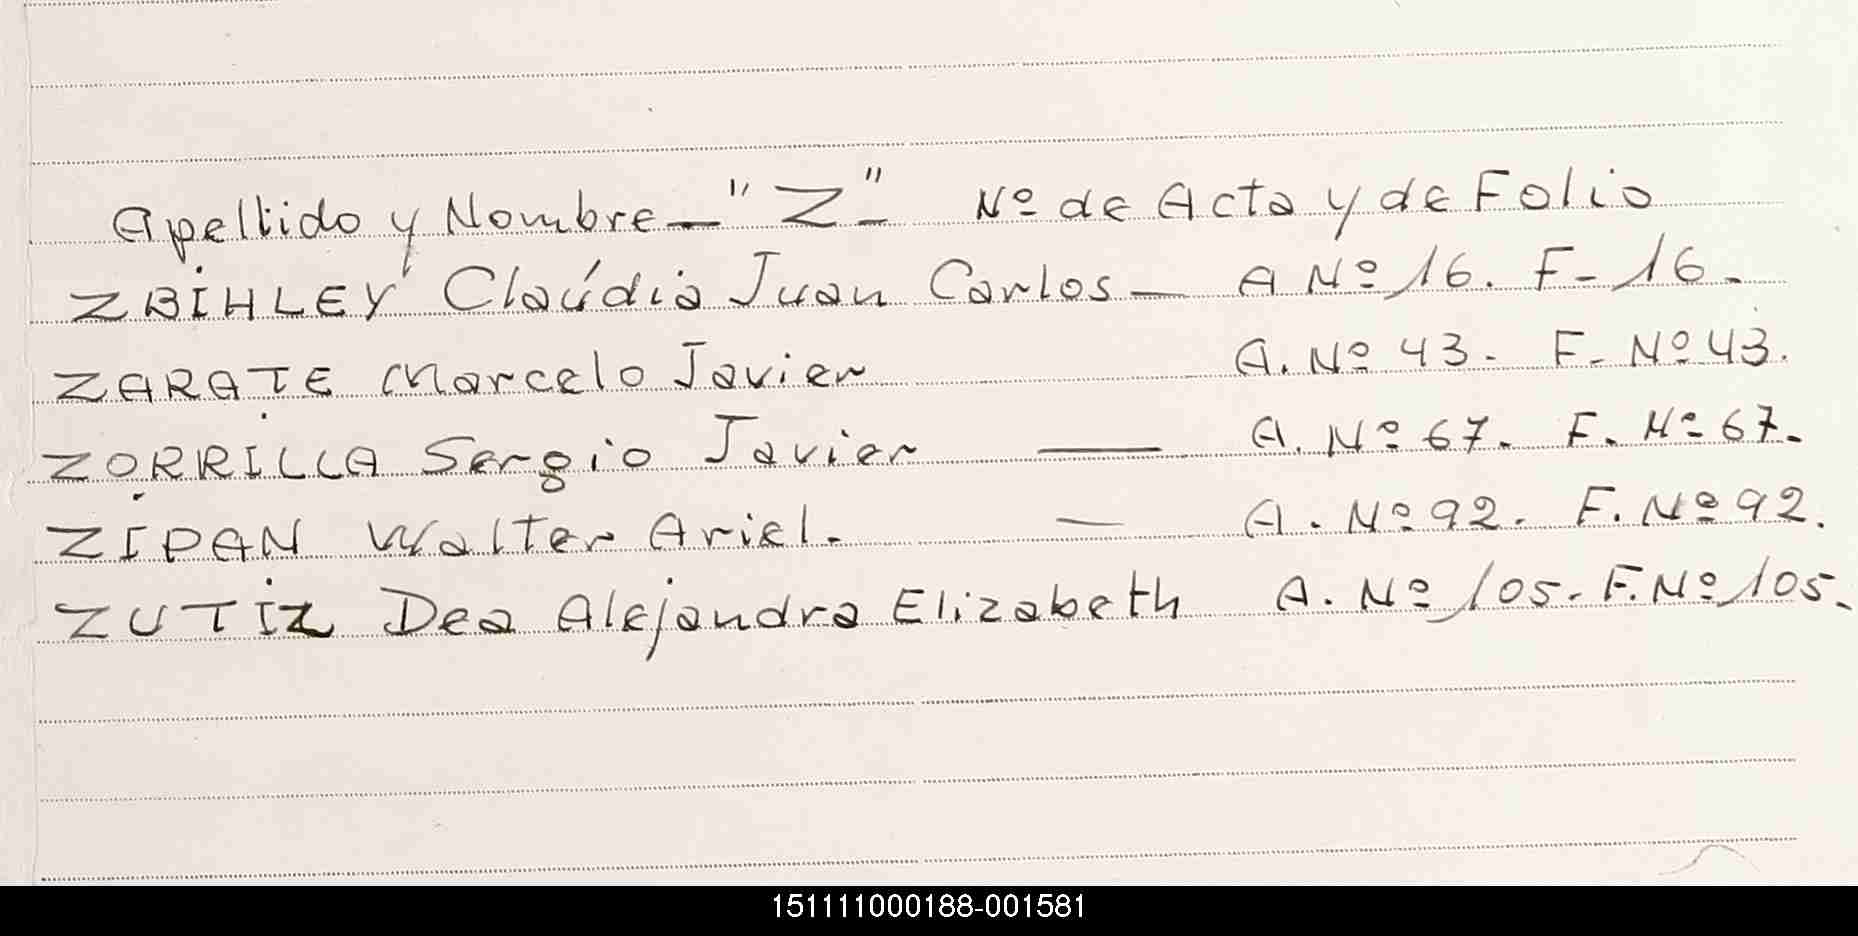 Apellido y Nombre - "Z" - Nº de Acta y de Folio
ZBIHLEY Claúdia Juan Carlos - A Nº 16. F- 16.
ZARATE Marcelo Javier A. Nº 43. F- Nº 43.
ZORRILLA Sergio Javier — A. Nº 67. F. Nº 67.
ZIPAN Walter Ariel. — A. Nº 92. F. Nº 92.
ZUTIZ Dea Alejandra Elizabeth A. Nº 105. F. Nº 105.
151111000188-001581